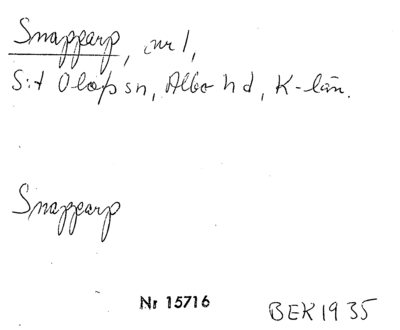 Snapparp, nr 1,
S:t Olofs sn, Albo hd, K-län.
Snapparp
Nr 15716
BEK 1935